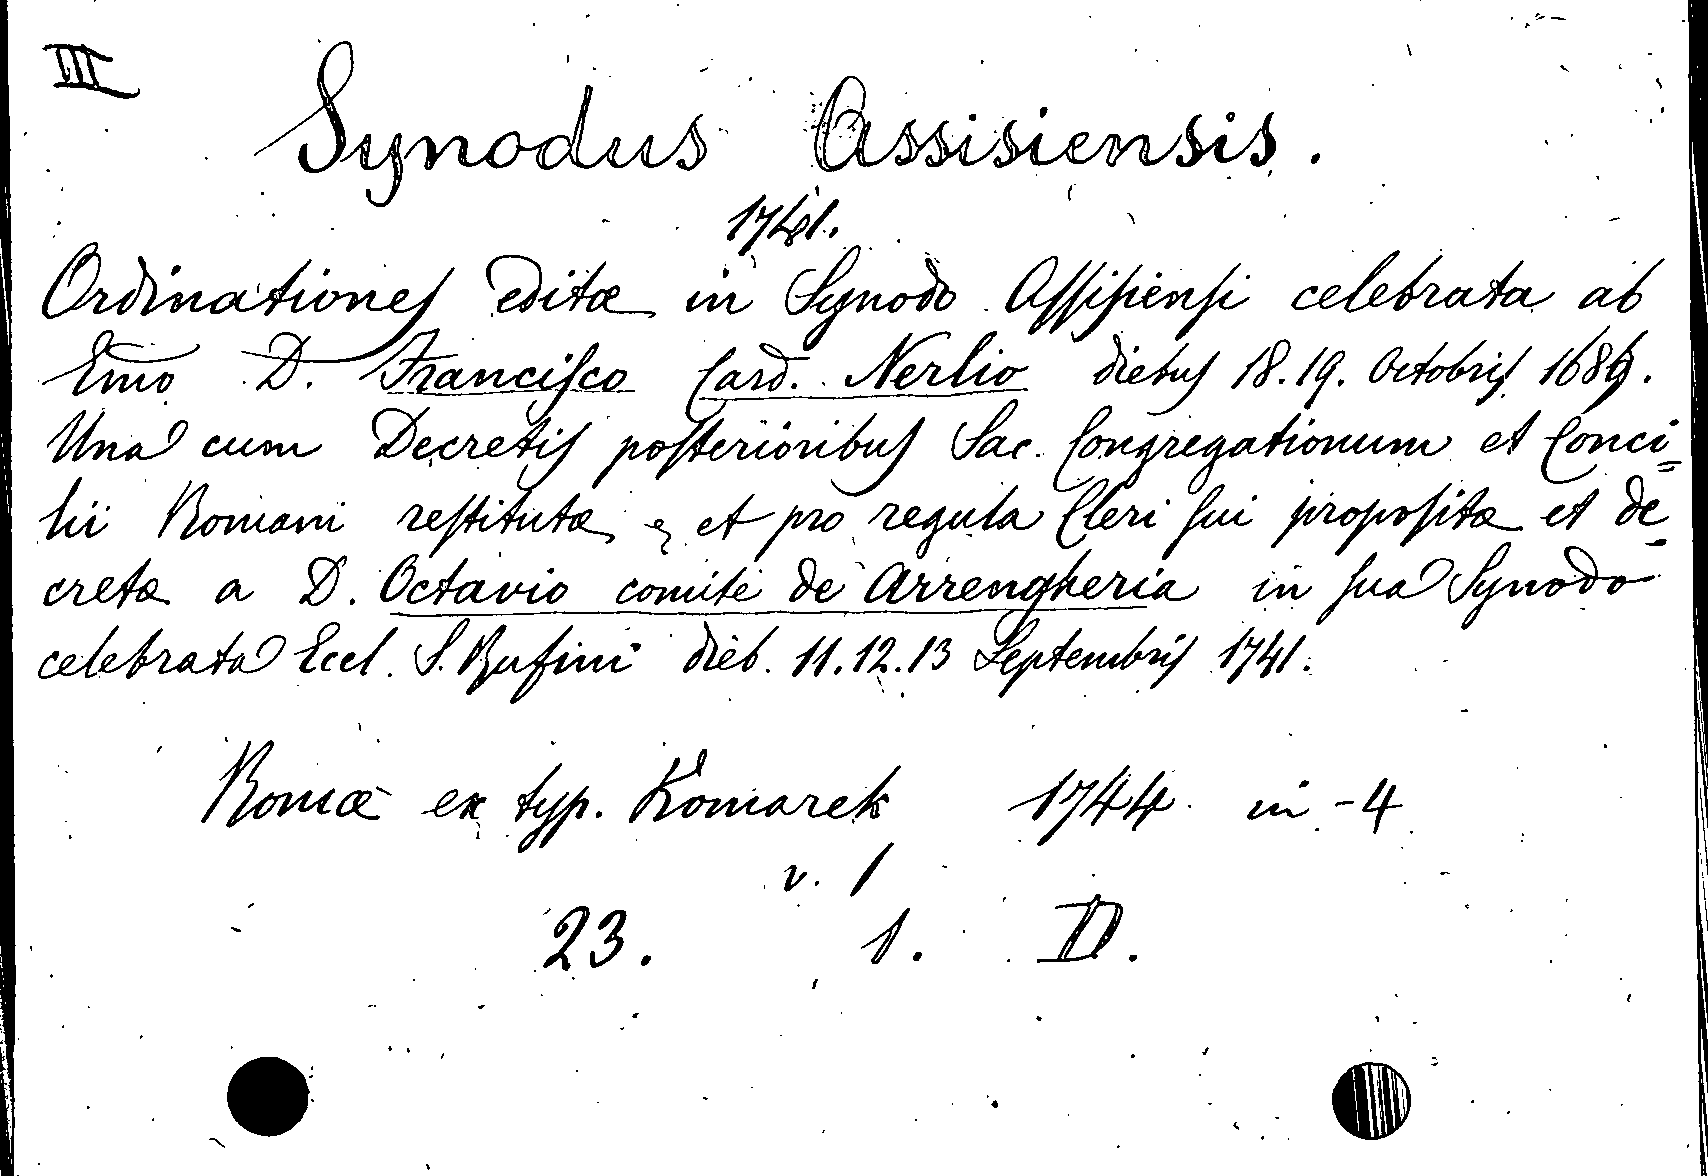 III
Synodus Assisiensis.
1741.
Ordinationes editæ in Synodo Assisiensi celebrata ab
Emo D. Francisco Card. Nerlio diebus 18. 19. Octobris 1689.
Una cum Decretis posterioribus Sac. Congregationum et Conci=
lii Romani restitutæ, et pro regula Cleri sui propositæ et de=
cretæ a D. Octavio comite de Arrengheria in sua Synodo
celebrata Eccl. S. Rufini dieb. 11. 12. 13 Septembris 1741.
Romæ ex typ. Komarek 1744 in -4
v. 1
23. 1. D.